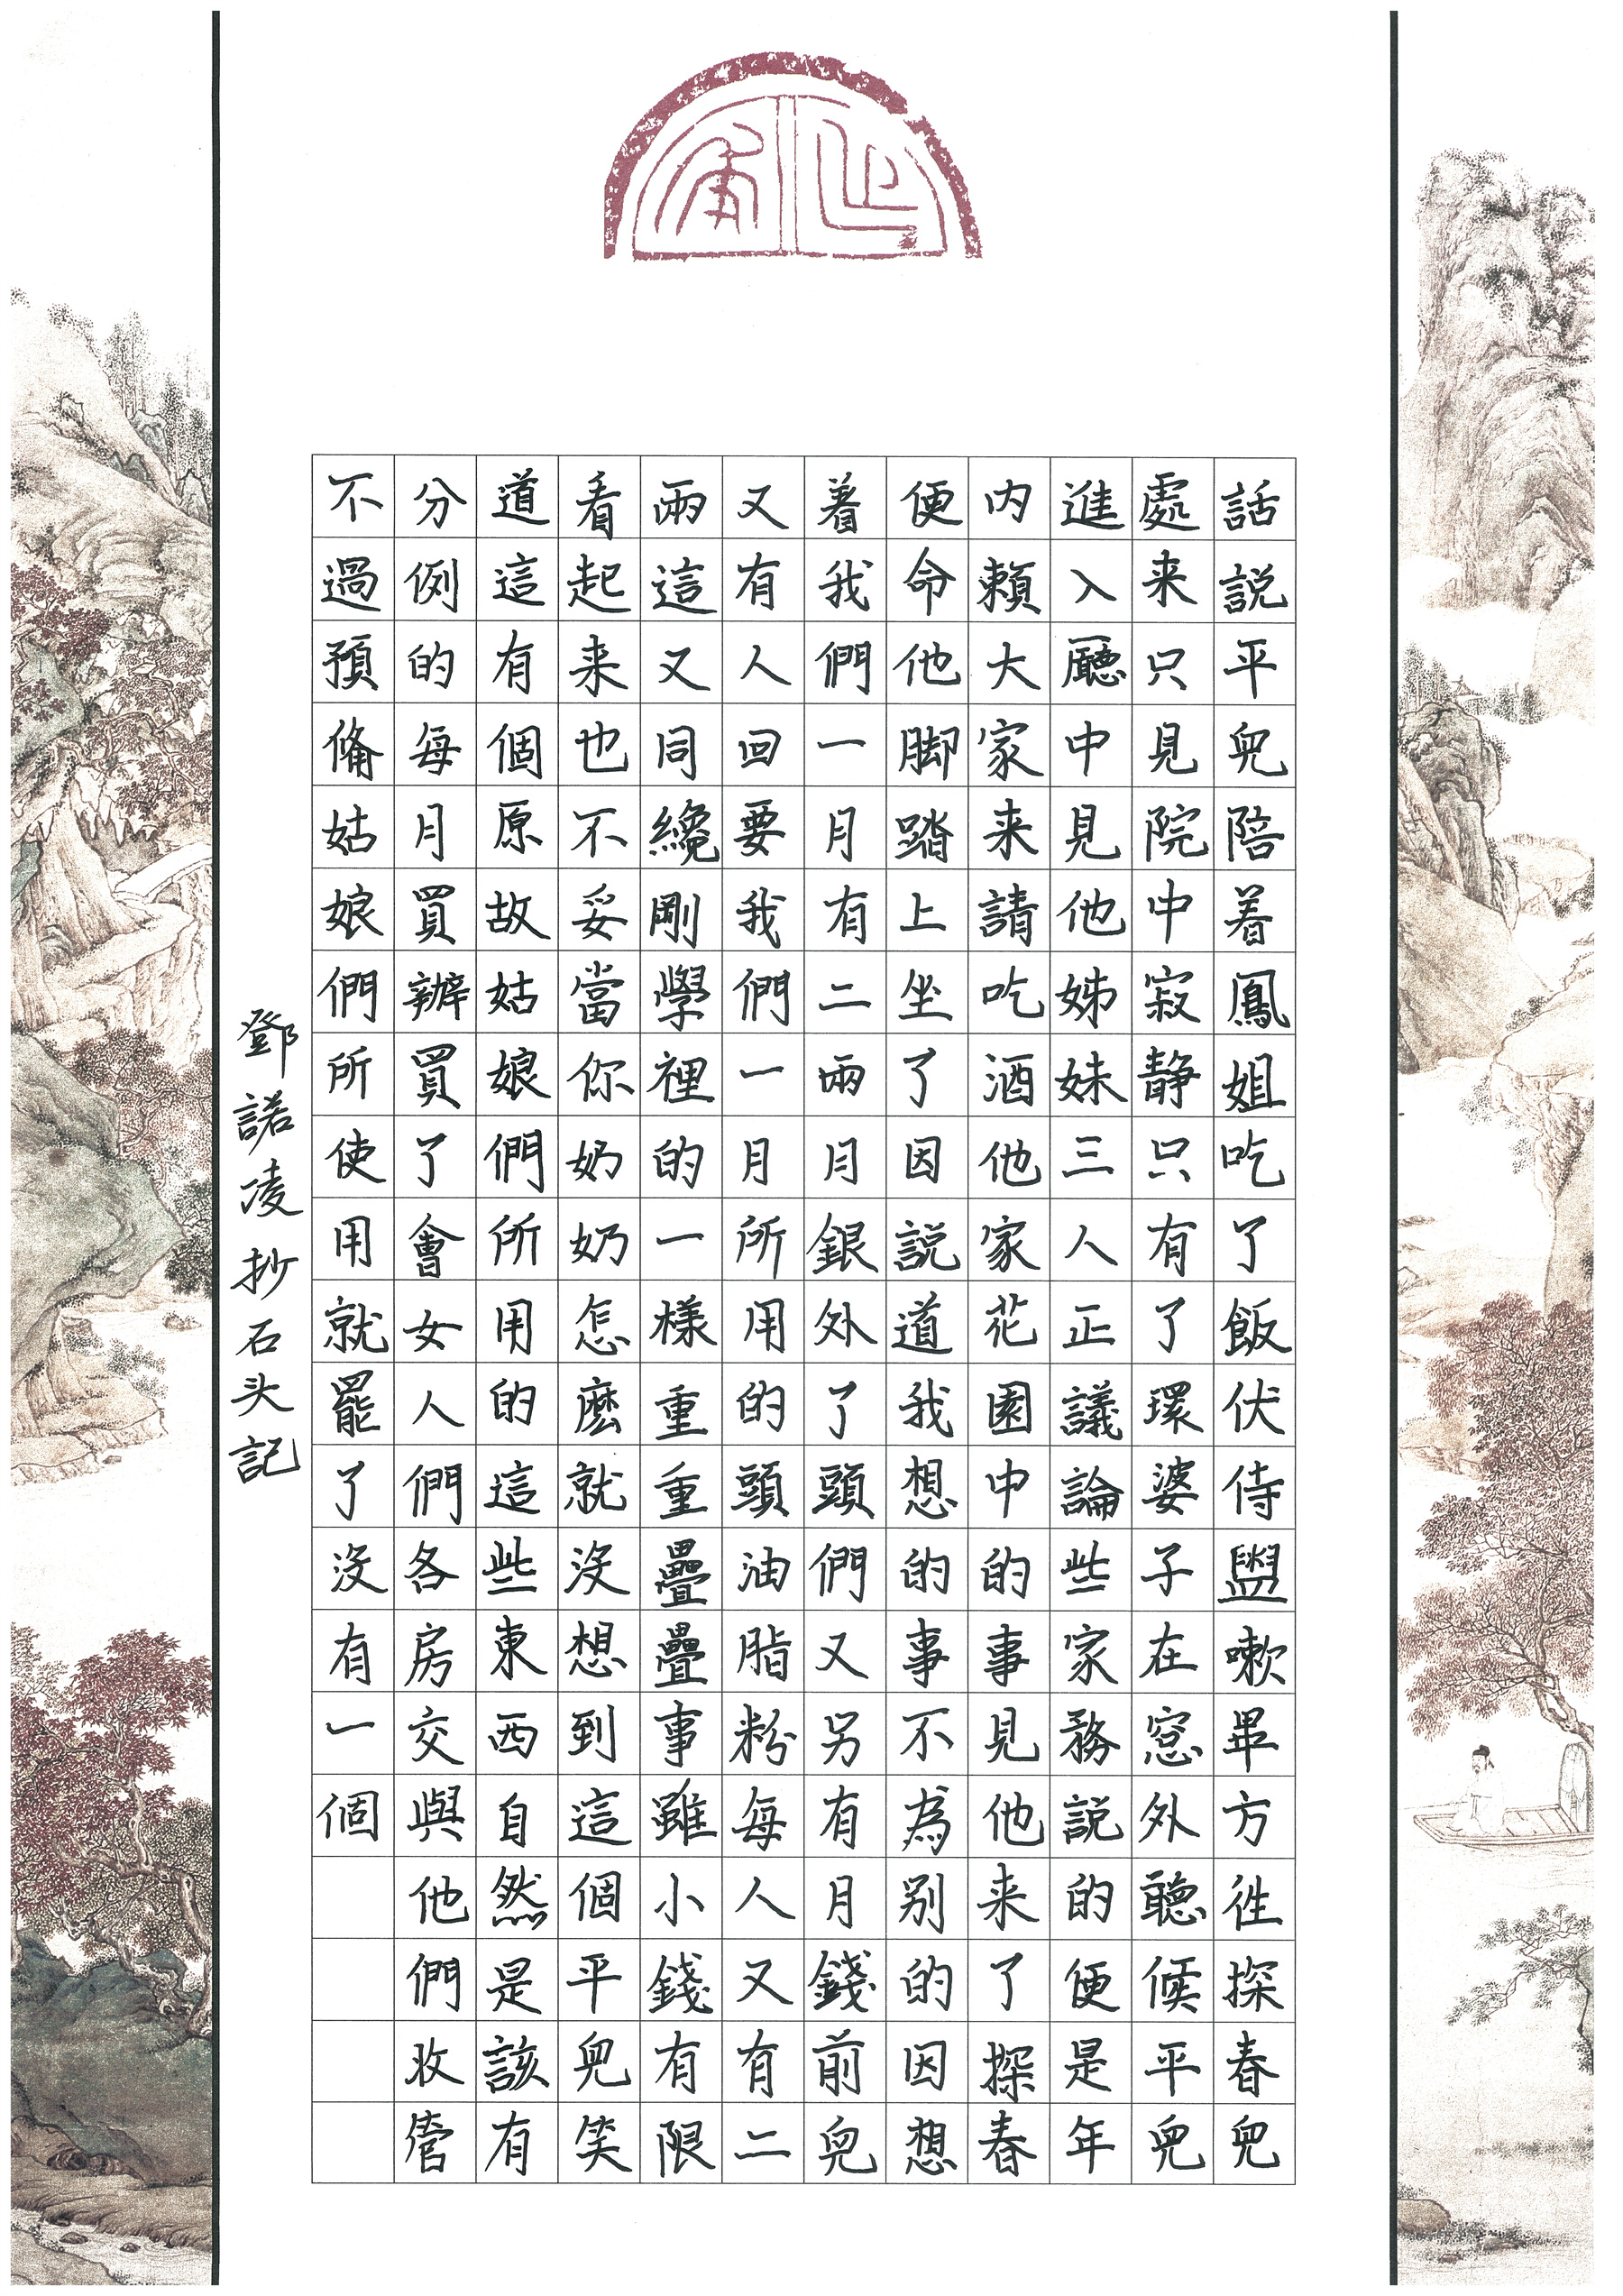 話説平兒陪着鳳姐吃了飯伏侍盥嗽畢方徃探春兒
處来只見院中寂静只有了環婆子在窓外聽候平兒
進入廳中見他姊妹三人正議論些家務説的便是年
内賴大家来請吃酒他家花園中的事見他来了探春
便命他脚踏上坐了因説道我想的事不為别的因想
着我們一月有二兩月銀外了頭們又另有月錢前兒
又有人回要我們一月所用的頭油脂粉每人又有二
兩這又同纔剛學裡的一樣重重疊疊事雖小錢有限
看起来也不妥當你奶奶怎麽就沒想到這個平兒笑
道這有個原故姑娘們所用的這些東西自然是該有
分例的每月買辦買了會女人們各房交與他們收管
不過預俻姑娘們所使用就罷了沒有一個
鄧諾凌抄石头記